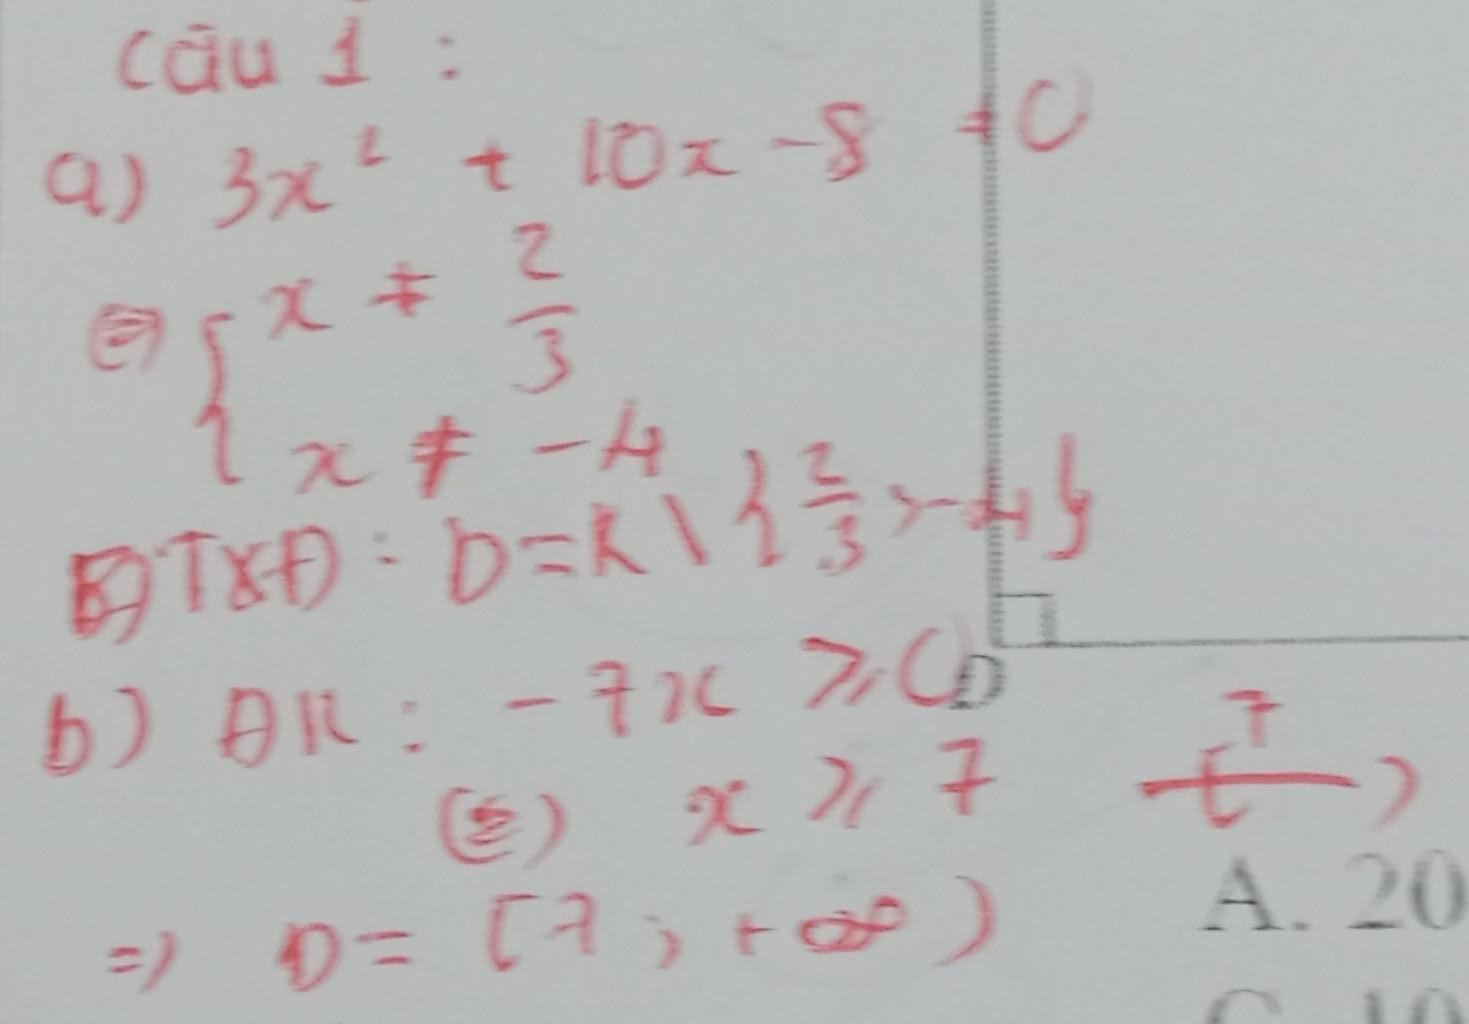 Câu 1 :
a) 3x² + 10x - 8 = 0
⇔ { x ≠ 2/3
x ≠ -4
TXĐ : D = R \ { 2/3 ; -4 }
D
b) ĐK : - 7x ≥ 0
7
(⇔) x ≥ 7 [ )
A. 20
⇒ D = [7 ; +∞ )
C. 10